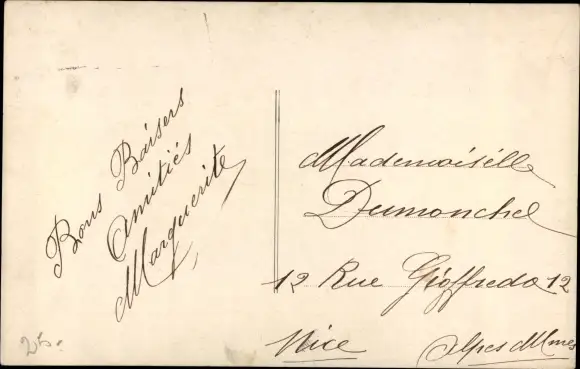 Bons Baisers
Amitiés
Marguerite
Mademoisélle
Dumonchel
12 Rue Gioffredo 12
Nice Alpes Mmes